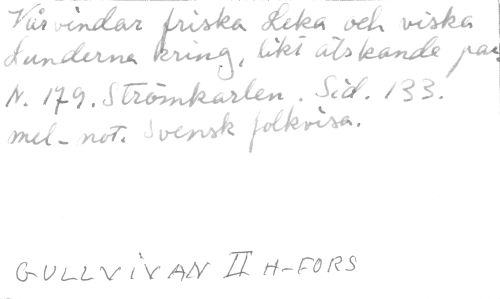 Vårvindar friska Leka och viska
Lunderna kring, likt älskande par
N. 179. Strömkarlen. Sid. 133.
mel-not. Svensk folkvisa.
GULLVIVAN II H-FORS